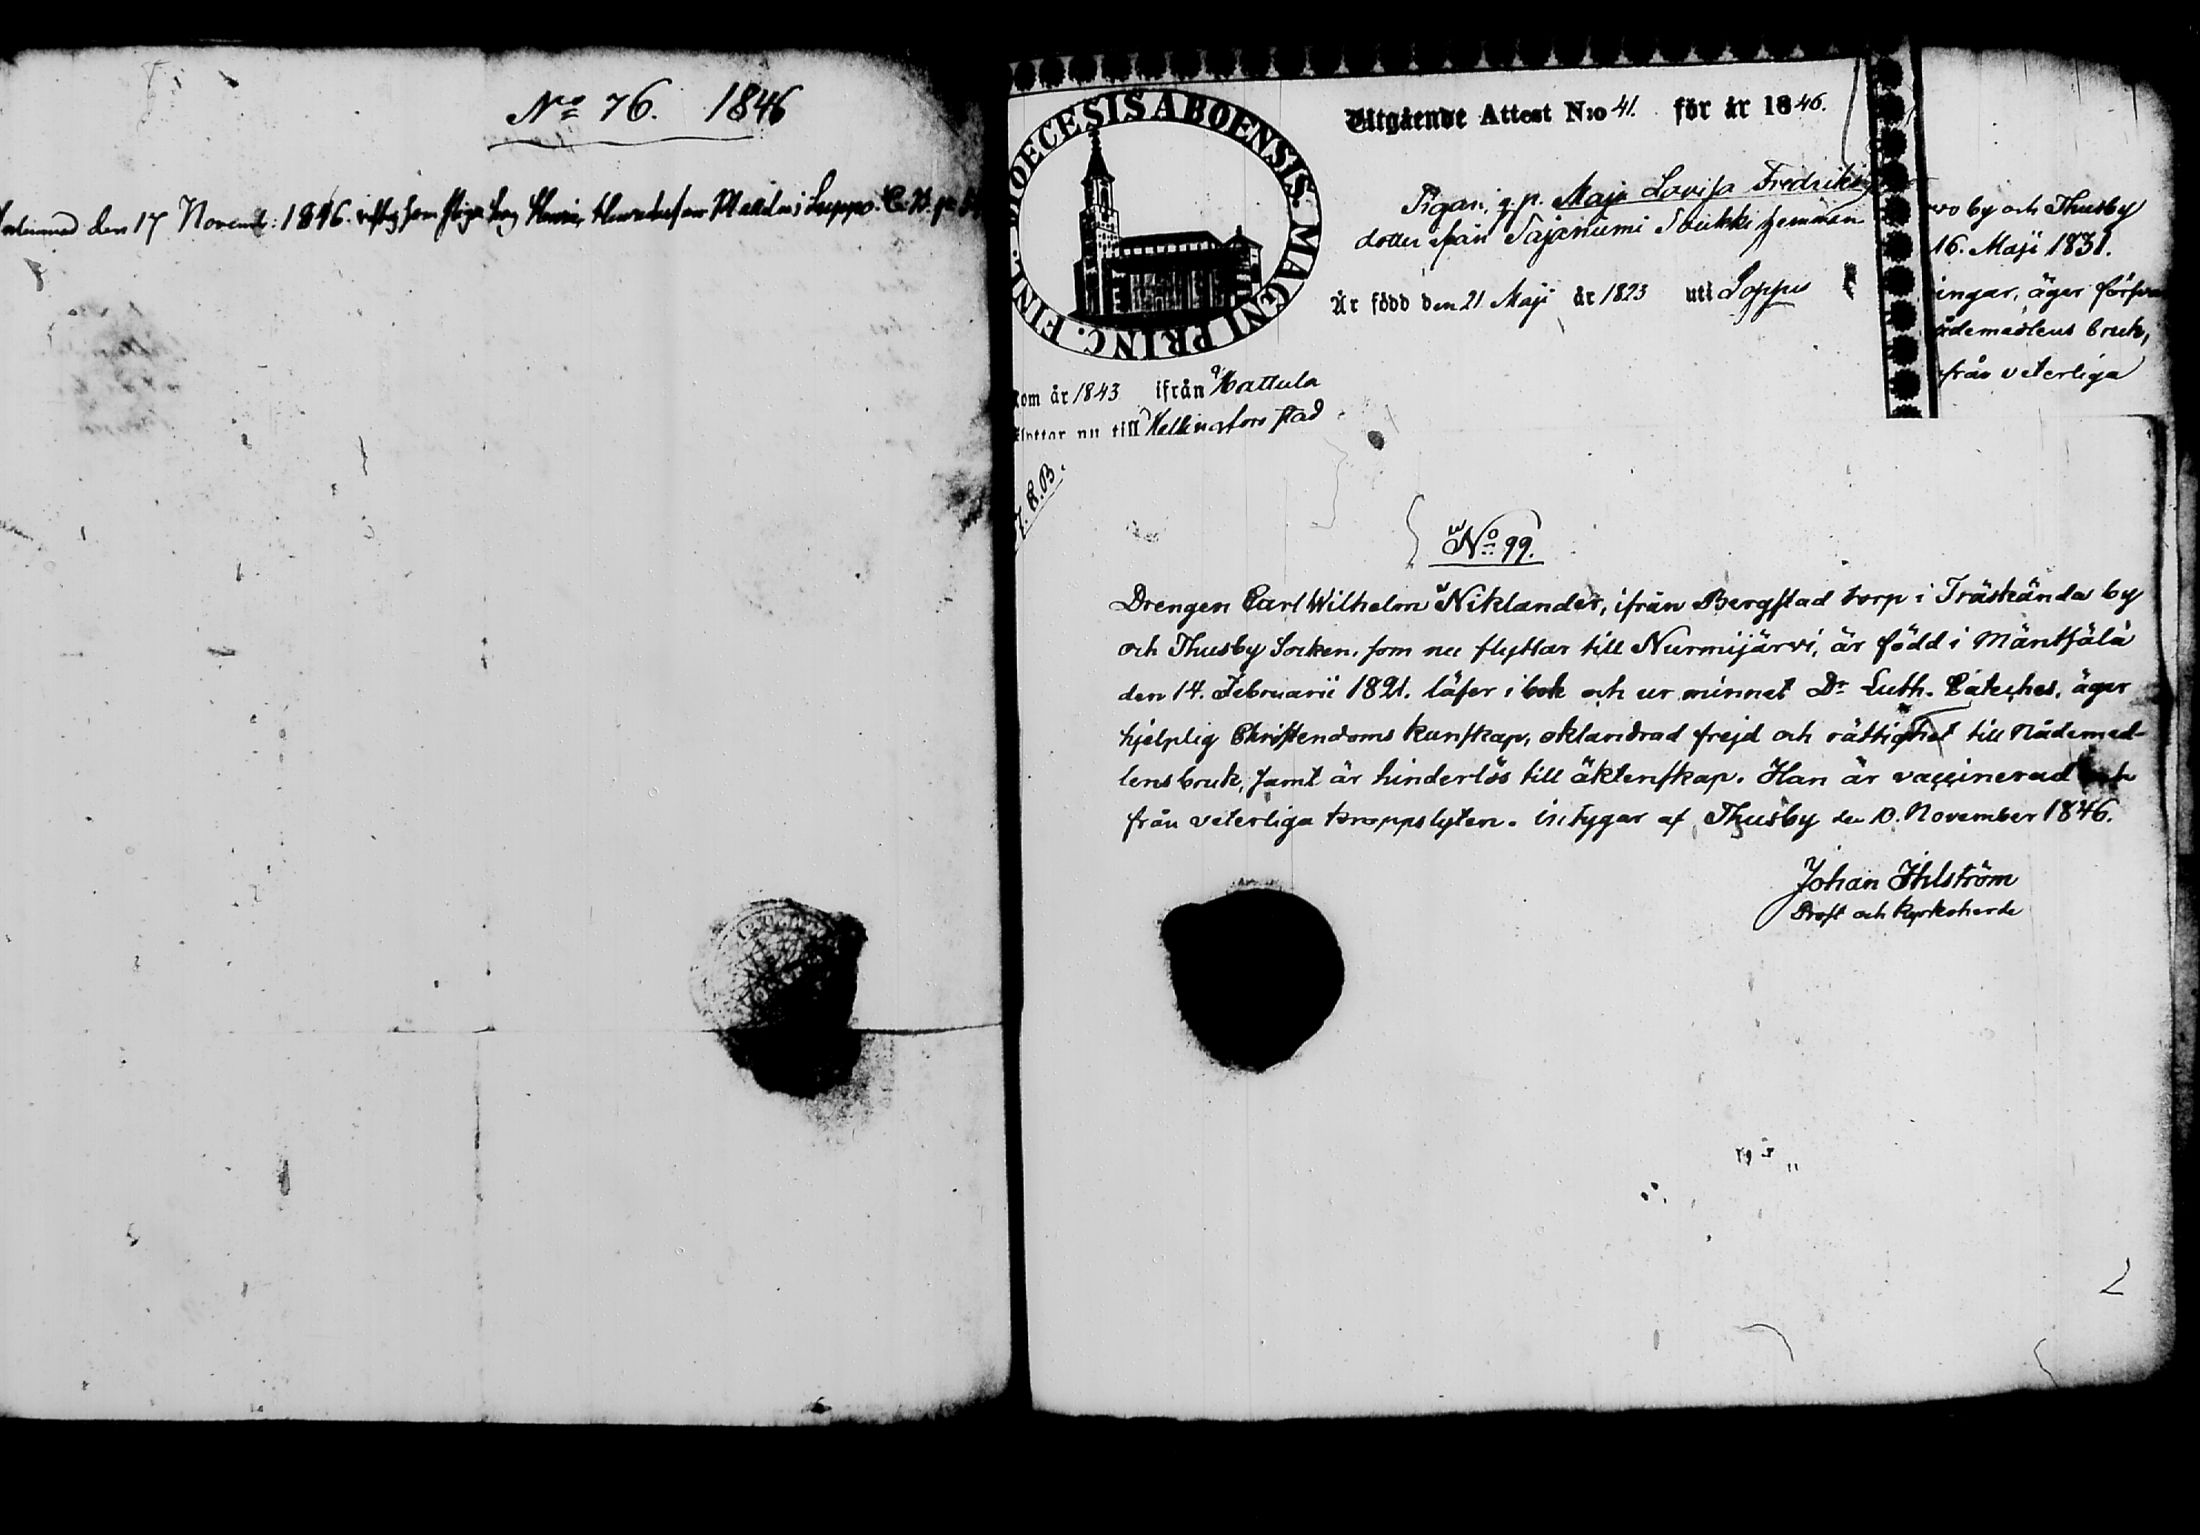 No 76. 1846
den 17 Novemb: 1846.
DIOECESIS ABOENSIS. MAGNI PRINC. FINL.
Utgående Attest N:o 41. för år 1846.
Pigan, g.p. Maja Lovisa Fredriks
dotter ifrån Sajaniemi hemman
Är född den 21 Maji år 1823 uti Loppis
kom år 1843 ifrån Hattula
flyttar nu till Helsingfors stad
by och Thusby
16. Maji 1831.
ingar, äger försva
ådemedlens bruk,
från veterliga
No 99.
Drengen Carl Wilhelm Niklander, ifrån Bergstad torp i Träskända by
och Thusby Socken, som nu flyttar till Nurmijärvi, är född i Mäntsälä
den 14. Februarii 1821. läser i bok och ur minnet Dr Luth. Cateches, äger
hjelplig Christendoms kunskap, oklandrad frejd och rättighet till Nådemed-
lens bruk, samt är hinderlös till äktenskap. Han är vaccinerad
från veterliga kroppslyten. intygar af Thusby den 10. November 1846.
Johan Ihlström
Prost och Kyrkoherde